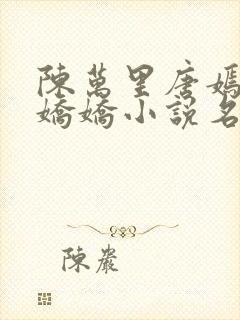 陳萬里唐嫣
嬌嬌小說名
陳巖